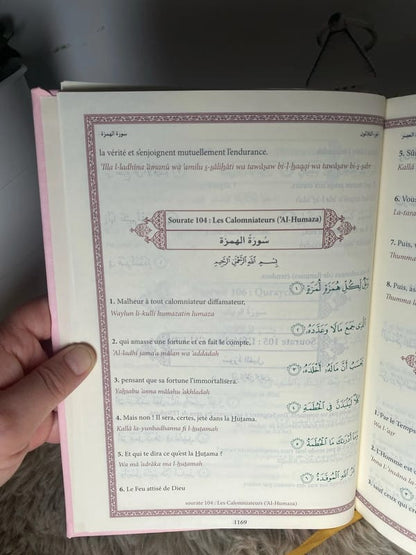 سورة الهمزة
الجزء الثلاثون
la vérité et s'enjoignent mutuellement l'endurance.
'Illa l-ladhīna 'āmanū wa 'amilu ṣ-ṣāliḥāti wa tawāṣaw bi-l-ḥaqqi wa tawāṣaw bi-ṣ-ṣabr
Sourate 104 : Les Calomniateurs ('Al-Humaza)
سُورَةُ الهُمَزَةِ
بِسْمِ اللَّهِ الرَّحْمَٰنِ الرَّحِيمِ
وَيْلٌ لِّكُلِّ هُمَزَةٍ لُّمَزَةٍ ١
1. Malheur à tout calomniateur diffamateur,
Waylun li-kulli humazatin lumaza
الَّذِي جَمَعَ مَالًا وَعَدَّدَهُ ٢
2. qui amasse une fortune et en fait le compte,
'Al-ladhī jama'a mālan wa 'addadah
يَحْسَبُ أَنَّ مَالَهُ أَخْلَدَهُ ٣
3. pensant que sa fortune l'immortalisera.
Yaḥsabu 'anna mālahu 'akhladah
كَلَّا لَيُنبَذَنَّ فِي الْحُطَمَةِ ٤
4. Mais non ! Il sera, certes, jeté dans la Ḥuṭama.
Kallā la-yunbadhanna fi l-ḥuṭamah
وَمَا أَدْرَاكَ مَا الْحُطَمَةُ ٥
5. Et qui te dira ce qu'est la Ḥuṭama ?
Wa mā 'adrāka ma l-ḥuṭamah
نَارُ اللَّهِ الْمُوقَدَةُ ٦
6. Le Feu attisé de Dieu
sourate 104 : Les Calomniateurs ('Al-Humaza)
1169
5. Sû
Kallā
7. Puis,
Thumma
8. Puis,
Thumma
1. Par le Temps
Wa l-'aṣr
2. L'Homme est
3. sauf ceux qui